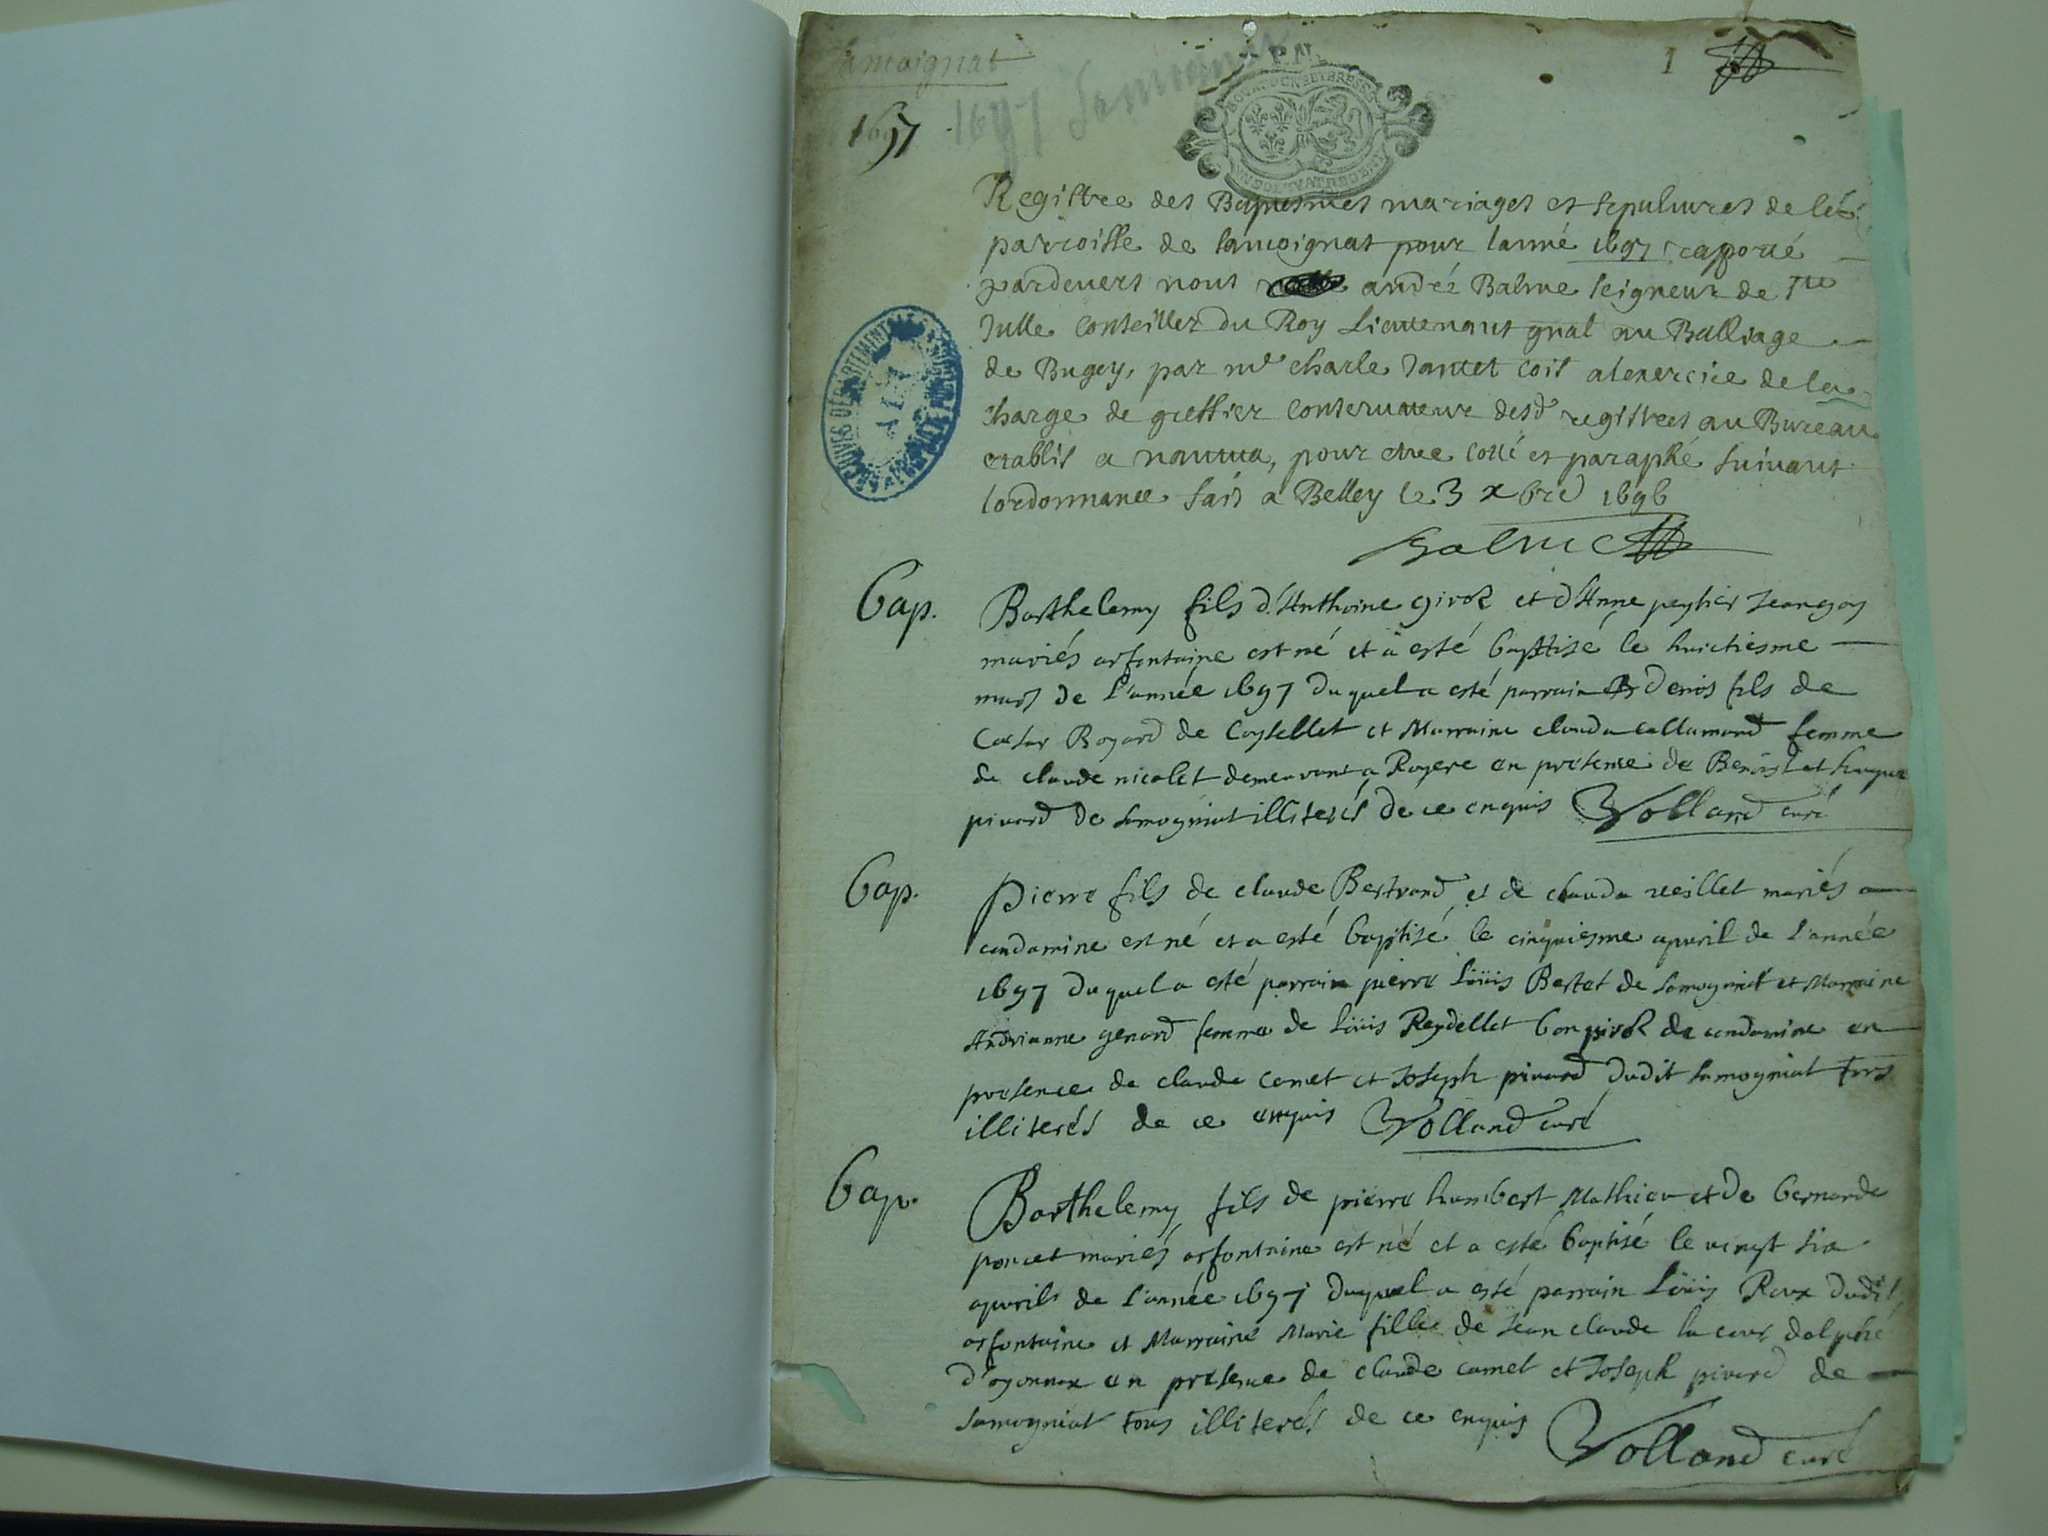 amoignat
1697 1697 Samognat
1
Registre des Baptesmes mariages et sepultures de la
parroisse de samoignat pour lanné 1697 raporté
pardevers nous andré Balme seigneur de Ste
Julle conseiller du Roy Lieutenant gnal au Balliage
de Bugey, par mr charle Jantet cois a lexercice de la
charge de greffier conservateur desd registres au Bureau
establis a nantua, pour etre cotté et paraphé suivant
lordonnance fait a Belley le 3 xbre 1696
Balme
Bap. Barthelemy fils d'Anthoine girod et d'Anne peytier Jeangoy
mariés arfontaine est né et a esté baptisé le huictiesme
mars de l'année 1697 duquel a esté parrain denis fils de
Cæsar Bogard de Coysellet et Marraine clauda callamard femme
de claude nicolet demeurant a Rogere en presence de Benoist et hugue
pivard de samogniat illiterés de ce enquis Volland curé
Bap. Pierre fils de claude Bertrand et de clauda reillet mariés a
condamine est né et a esté baptisé le cinquiesme apvril de l'année
1697 duquel a esté parrain pierre Loüis Bertet de samogniat et Marraine
Andrianne genard femme de Loüis Reydellet de condamine en
presence de claude comet et Joseph pivard dudit samogniat tous
illiterés de ce enquis Volland curé
Bap. Barthelemy fils de pierre humbert Mathieu et de bernarde
poncet mariés arfontaine est né et a esté baptisé le vingt six
apvril de l'année 1697 duquel a esté parrain Loüis Roux dudit
arfontaine et Marraine Marie fille de Jean claude la cour dalphé
d'oyonnax en presence de claude comet et Joseph pivard de
samogniat tous illiterés de ce enquis Volland curé